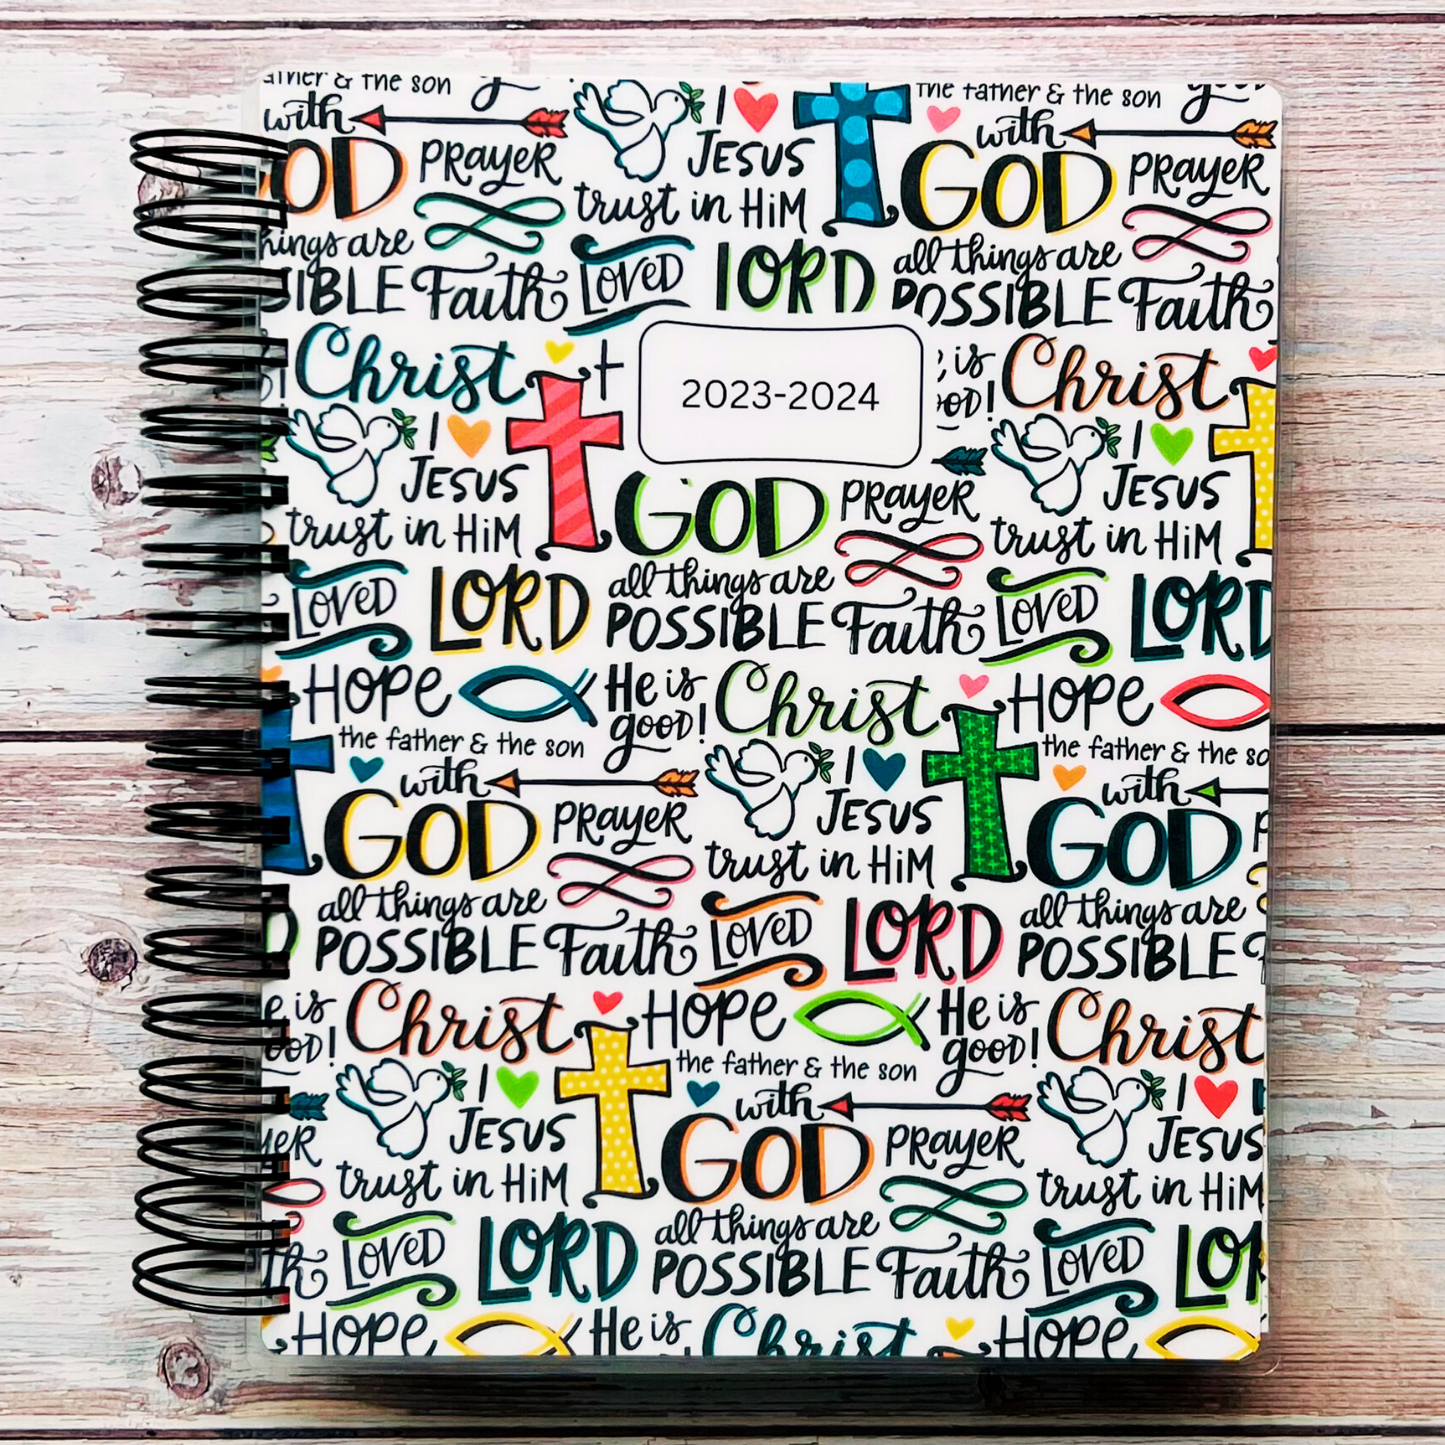 father & the son
the father & the son
good
with
I
with
GOD
PRAYER
JESUS
GOD
PRAYER
trust in HiM
things are
LOVED
LORD
all things are
POSSIBLE
Faith
POSSIBLE
Faith
Christ
2023-2024
is
Christ
I
I
JESUS
GOD
PRAYER
JESUS
trust in HiM
trust in HiM
LOVED
LORD
all things are
POSSIBLE
Faith
LOVED
LORD
HOPE
He is
good!
Christ
HOPE
the father & the son
I
the father & the so
with
GOD
PRAYER
JESUS
with
GOD
trust in HiM
all things are
POSSIBLE
Faith
LOVED
LORD
all things are
POSSIBLE
is
Christ
HOPE
He is
good!
Christ
the father & the son
I
JESUS
with
GOD
PRAYER
I
JESUS
trust in HiM
trust in HiM
LOVED
LORD
all things are
POSSIBLE
Faith
LOVED
HOPE
He is
Christ
HOPE